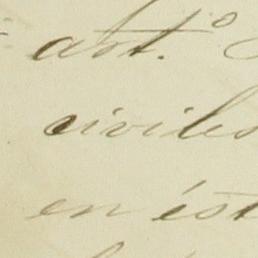 art.º
civiles
en est